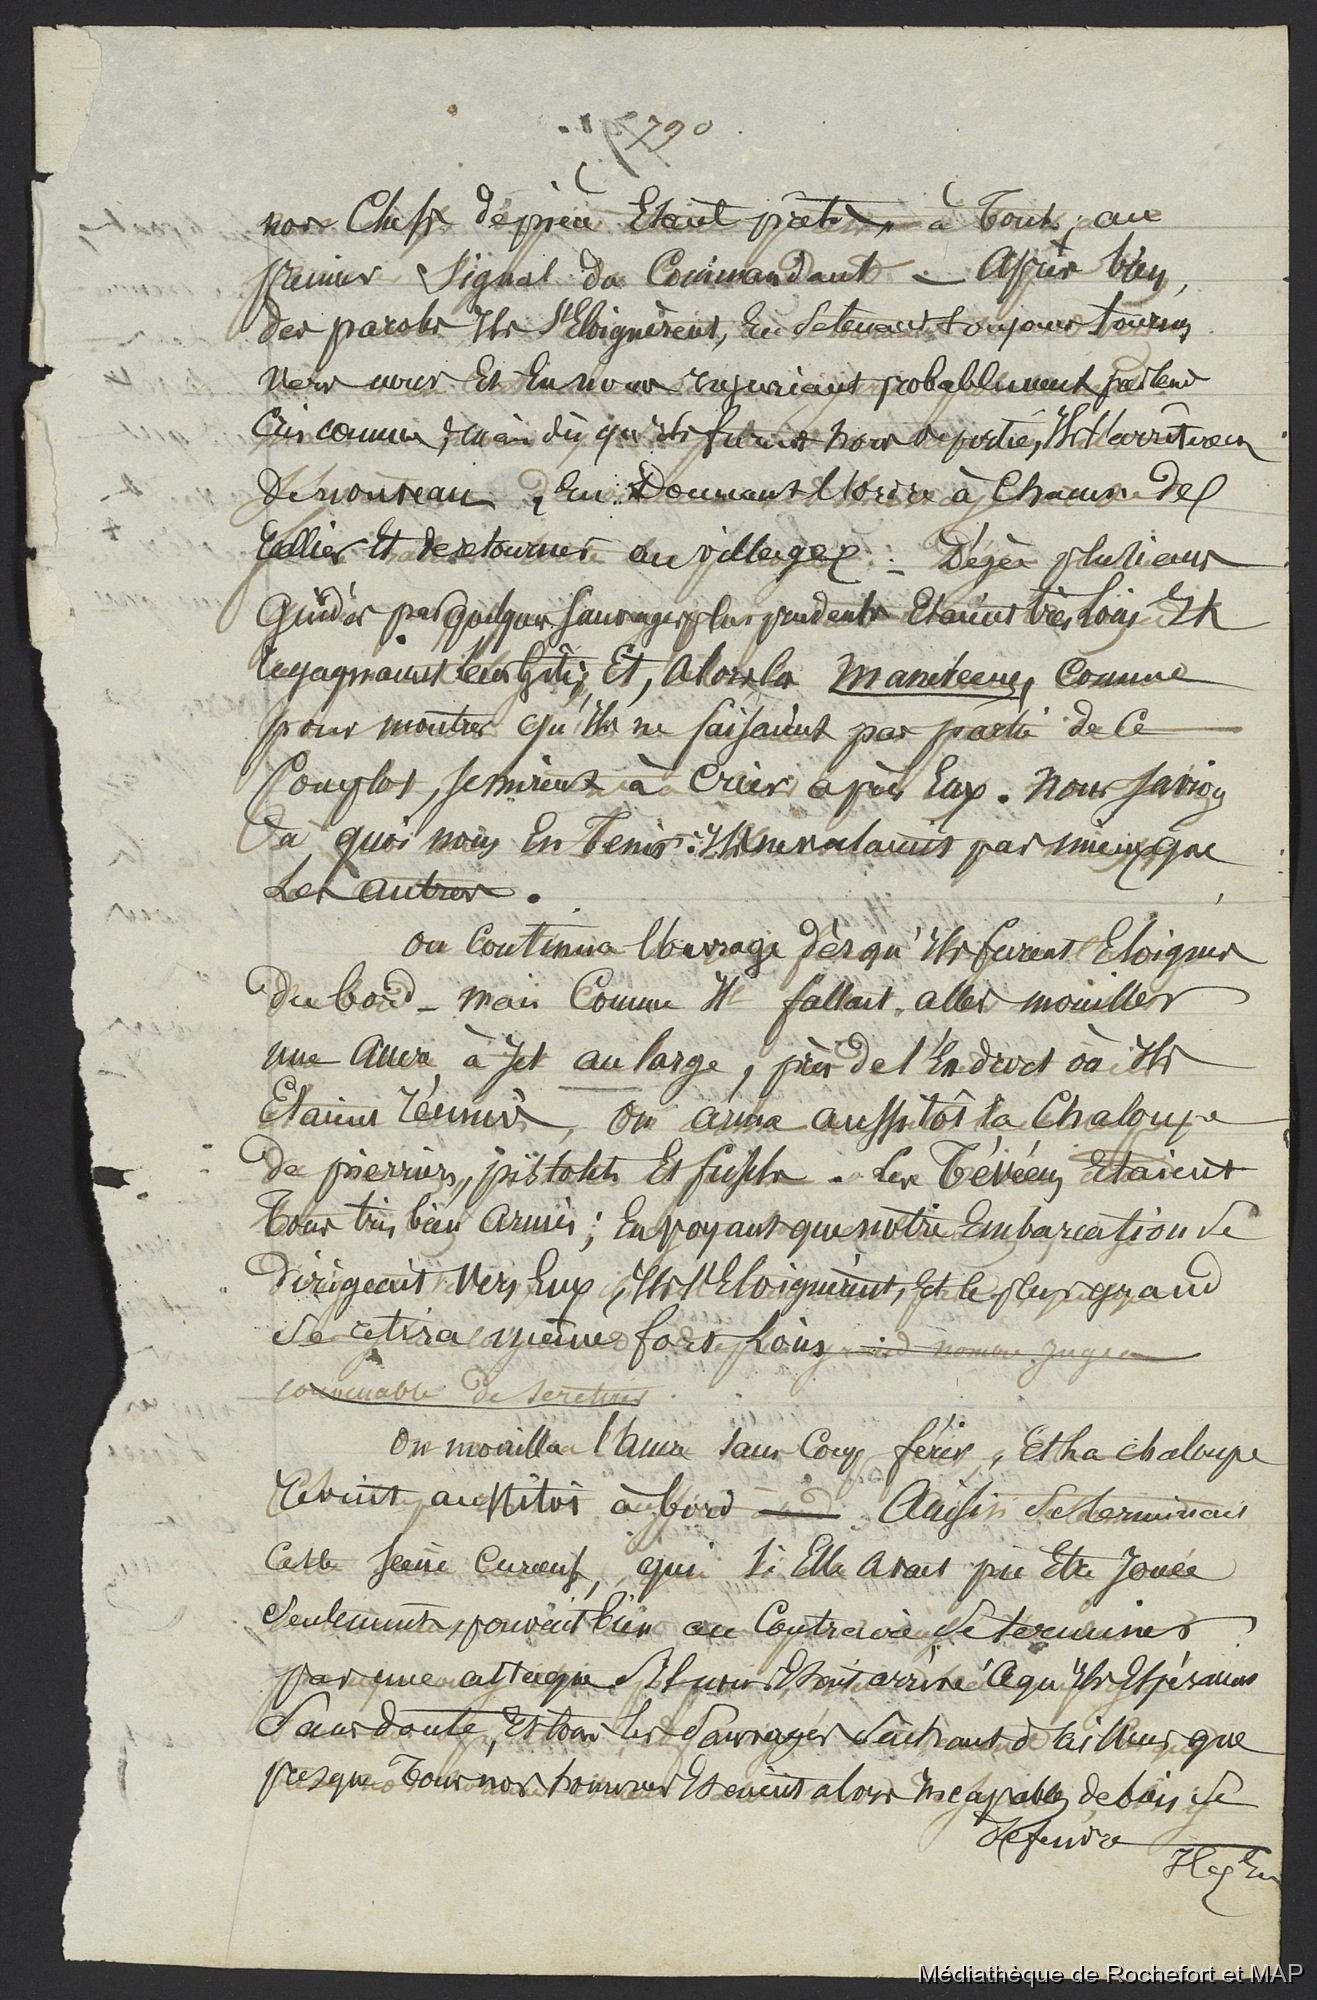 790
nos Chefs de pièce Etant prêts, à Tout, au
premier Signal du Commandant — Après bien
des paroles Ils S'Eloignèrent, En Se tenant toujours tournés
vers nous Et En nous injuriant probablement par leurs
Cris comme, mais dès qu'ils furent hors de portée, Ils S'arrêtèrent
de nouveau, En Donnant l'ordre à Chacun de
Rallier Et de retourner au village. — Déjà plusieurs
Guidés par quelques Sauvages plus prudents Etaient très loin Et
regagnaient leurs gîtes, Et, Alors les Manévéens, Comme
pour montrer qu'Ils ne faisaient pas partie de Ce
Complot, se mirent à Crier après Eux. Nous Savions
à quoi nous En Tenir: Ils ne valaient pas mieux que
Les autres.
On Continua l'ouvrage dès qu'Ils furent Eloignés
du bord — mais Comme Il fallait aller mouiller
une Ancre à Jet au large, près de l'Endroit où Ils
Etaient réunis, On arma aussitôt la Chaloupe
de pierriers, pistolets Et fusils. Les Tévéens Etaient
Tous très bien Armés; En voyant que notre Embarcation Se
dirigeait Vers Eux, Ils S'Eloignèrent, Et le plus grand
Se retira même fort Loin nombre jugea
convenable de Se retirer.
On mouilla l'Ancre sans Coup férir, Et La chaloupe
Revint aussitôt à bord Ainsi Se terminait
Cette Scène Curieuse, qui Si Elle Avait pu Etre Jouée
Seulement, pouvait bien au Contraire Se terminer
par une attaque Si l'un Etait arrivé Ce qu'Ils Espéraient
Sans doute, Et tous les Sauvages Sachant d'ailleurs que
presque Tous nos hommes Etaient alors Incapables de bien Se
défendre